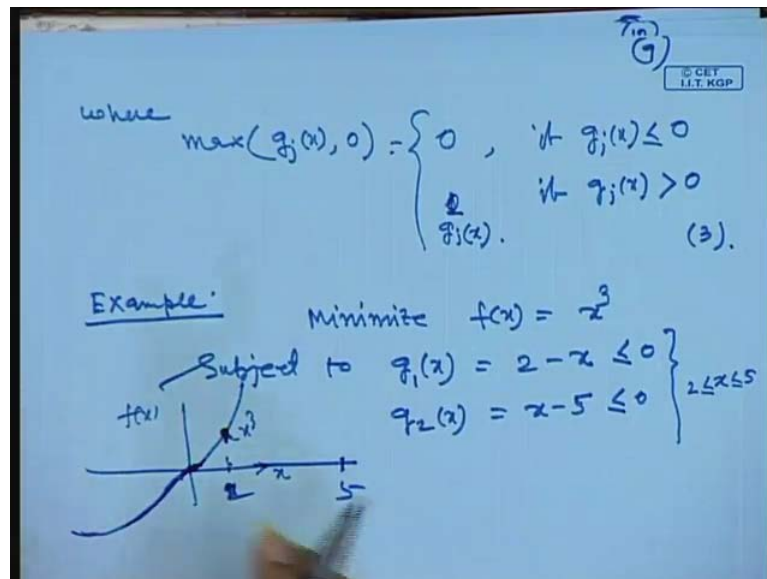 (9)
© CET
I.I.T. KGP
where
max(gⱼ(x), 0) = { 0 , if gⱼ(x) ≤ 0
gⱼ(x). if gⱼ(x) > 0
(3).
Example:
Minimize f(x) = x³
Subject to g₁(x) = 2 - x ≤ 0
g₂(x) = x - 5 ≤ 0 } 2 ≤ x ≤ 5
f(x)
x³
x
2
5